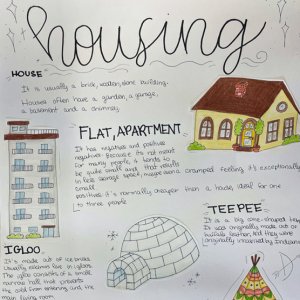 housing
HOUSE
It is usually a brick, wooden, stone building.
Houses often have a garden, a garage,
a basement and a chimney.
FLAT, APARTMENT
It has negatives and positives
negatives: Because it's not meant
for many people, it tends to
be quite small and that results
in less storage space, maybe even a cramped feeling, it's exceptionally
small
positives: it's normally cheaper than a house, ideal for one
to three people
TEEPEE
It is a big cone-shaped tent
It was originally made out of
buffalo leather, and they were
originally invented by Indians
IGLOO
It's made out of ice bricks
usually eskimos live in igloos.
The igloo consists of a small
narrow hall that prevents
the cold from entering and, the
main living room.